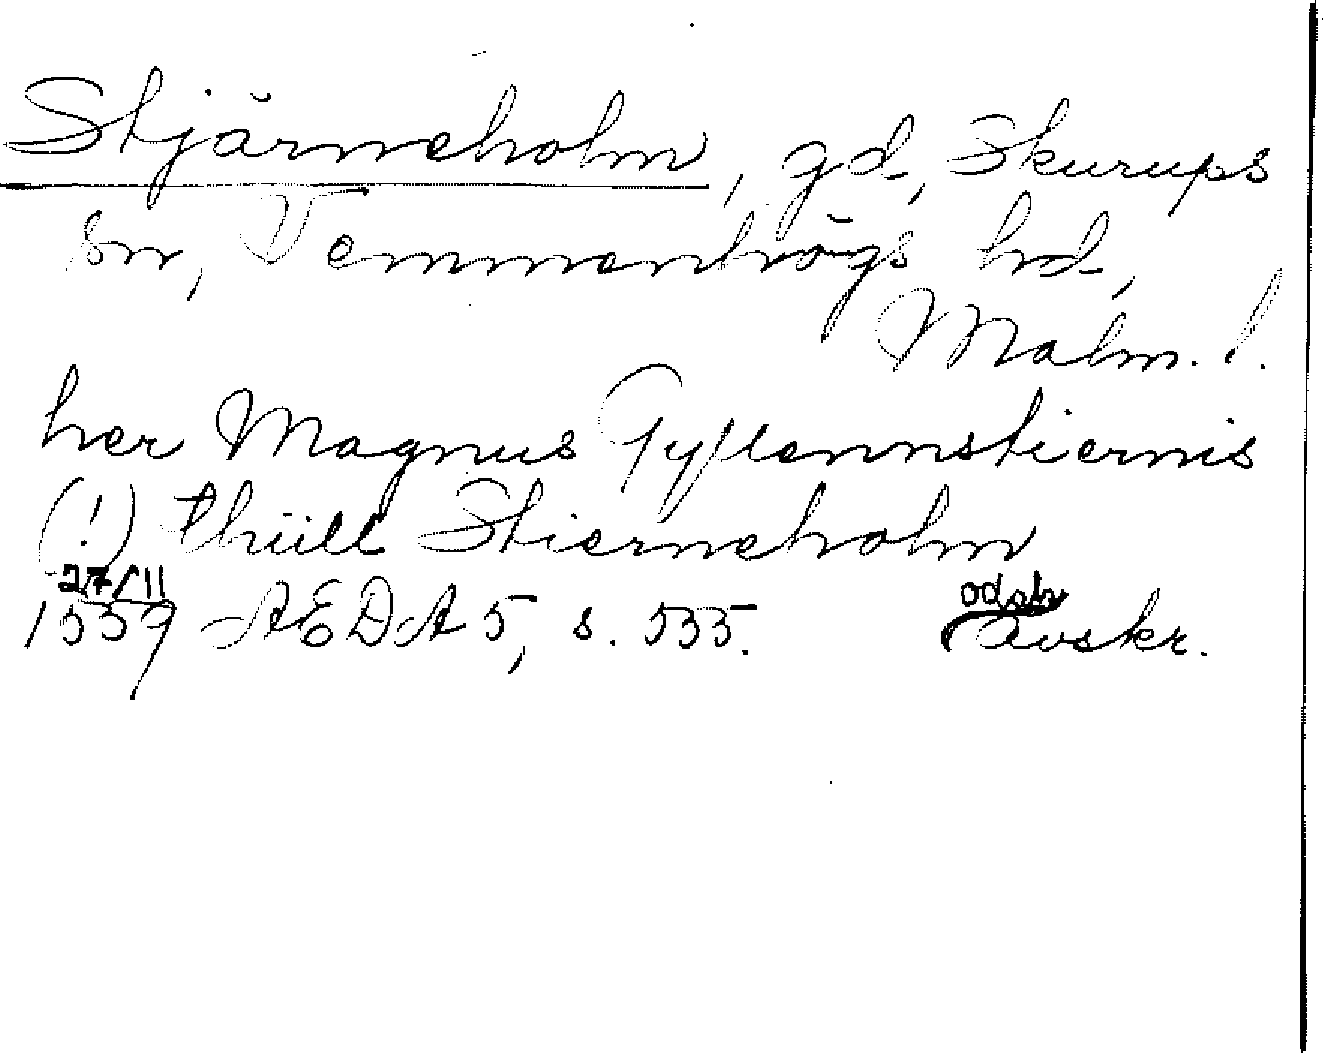 Stjärneholm, gd, Skurups
sn, Vemmenhögs hd,
Malm. l.
her Magnus Gyllennstiernis
(!) thiill Stierneholm
27/11
1559 AEDA 5, s. 535. avskr.